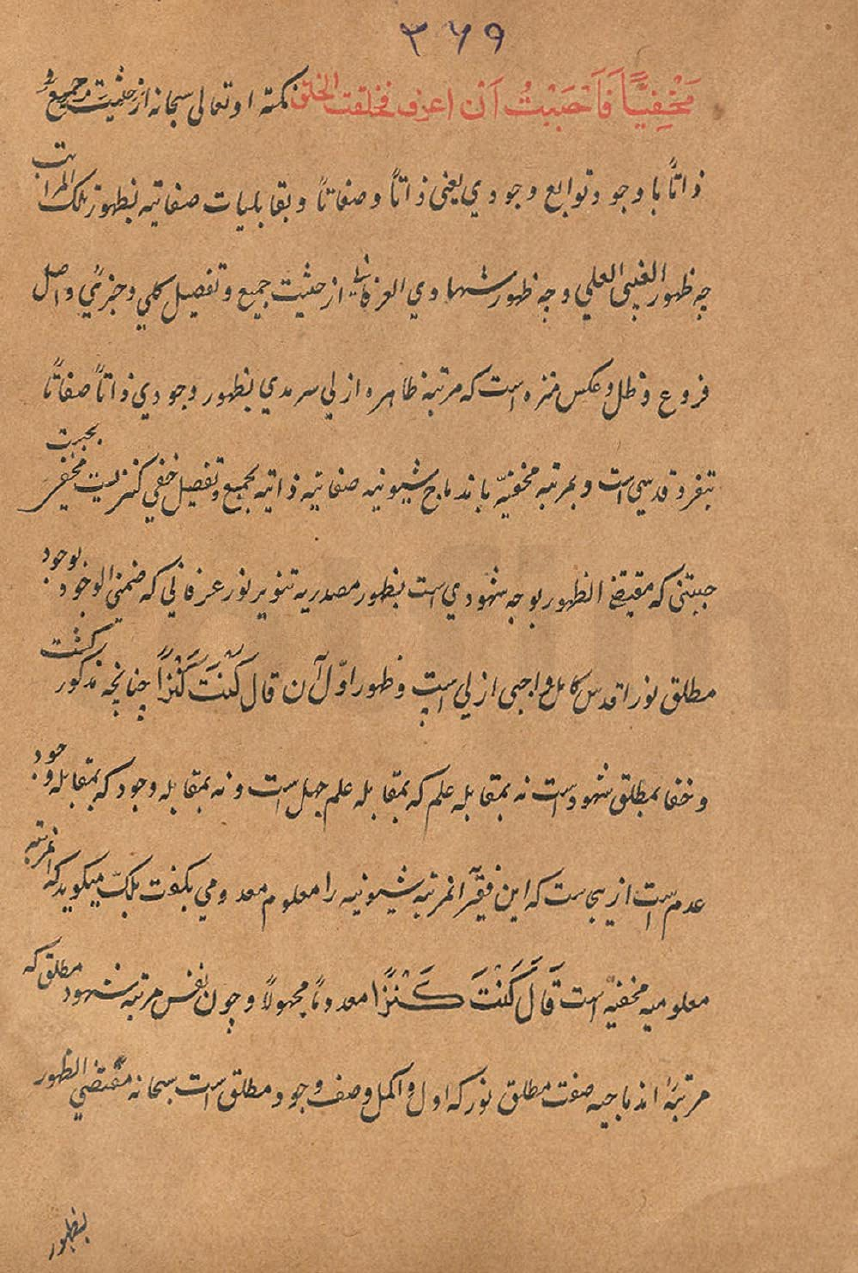 ۳۶۹
مَخْفِيًّا فَاَحْبَبْتُ اَنْ اعرف فخلقت الخلق نکته او تعالی سبحانه از حثیت جمیع و
ذاتاً با وجود توابع وجودي یعنی ذاتاً و صفاتاً و بقابلیات صفاتیه بظهور تلک المراتب
چه ظهور الغیبی العلمي و چه ظهور شهادي العرفانی از حثیت جمیع و تفصیل کلي و جزئي و اصل
فروع و ظل و عکس منزه است که مرتبه ظاهره ازلي سرمدي بظهور وجودي ذاتاً صفاتاً
بتفرد قدسي است و بمرتبه مخفیّه باندماج شیونیه صفاتیه ذاتیه بجمیع و تفصیل خفي کنزیست بحیث
جبتی که مقتضی الظهور بوجه شهودي است بظهور مصدریه تنویر نور عرفاني که ضمنی الوجود بوجود
مطلق نور اقدس کامل واجبی ازلي است و ظهور اوّل آن قال کُنْتُ کَنْزًا چنانچه مذکور گشت
و خفا بمطلق شهود است نه بمقابله علم که بمقابله علم جهل است و نه بمقابله وجود که بمقابله وجود
عدم است ازینجاست که این فقیر آنمرتبه شیونیه را معلوم معدومي بگفت بلکه میگوید که آنمرتبه
معلومیه مخفیه است قَالَ کُنْتَ کَنْزًا معدوماً مجهولاً و چون بنفس مرتبه شهود مطلق که
مرتبهٔ اندماجیه صفت مطلق نور که اول و اکمل وصف وجود مطلق است سبحانه مقتضي الظهور
بظهور